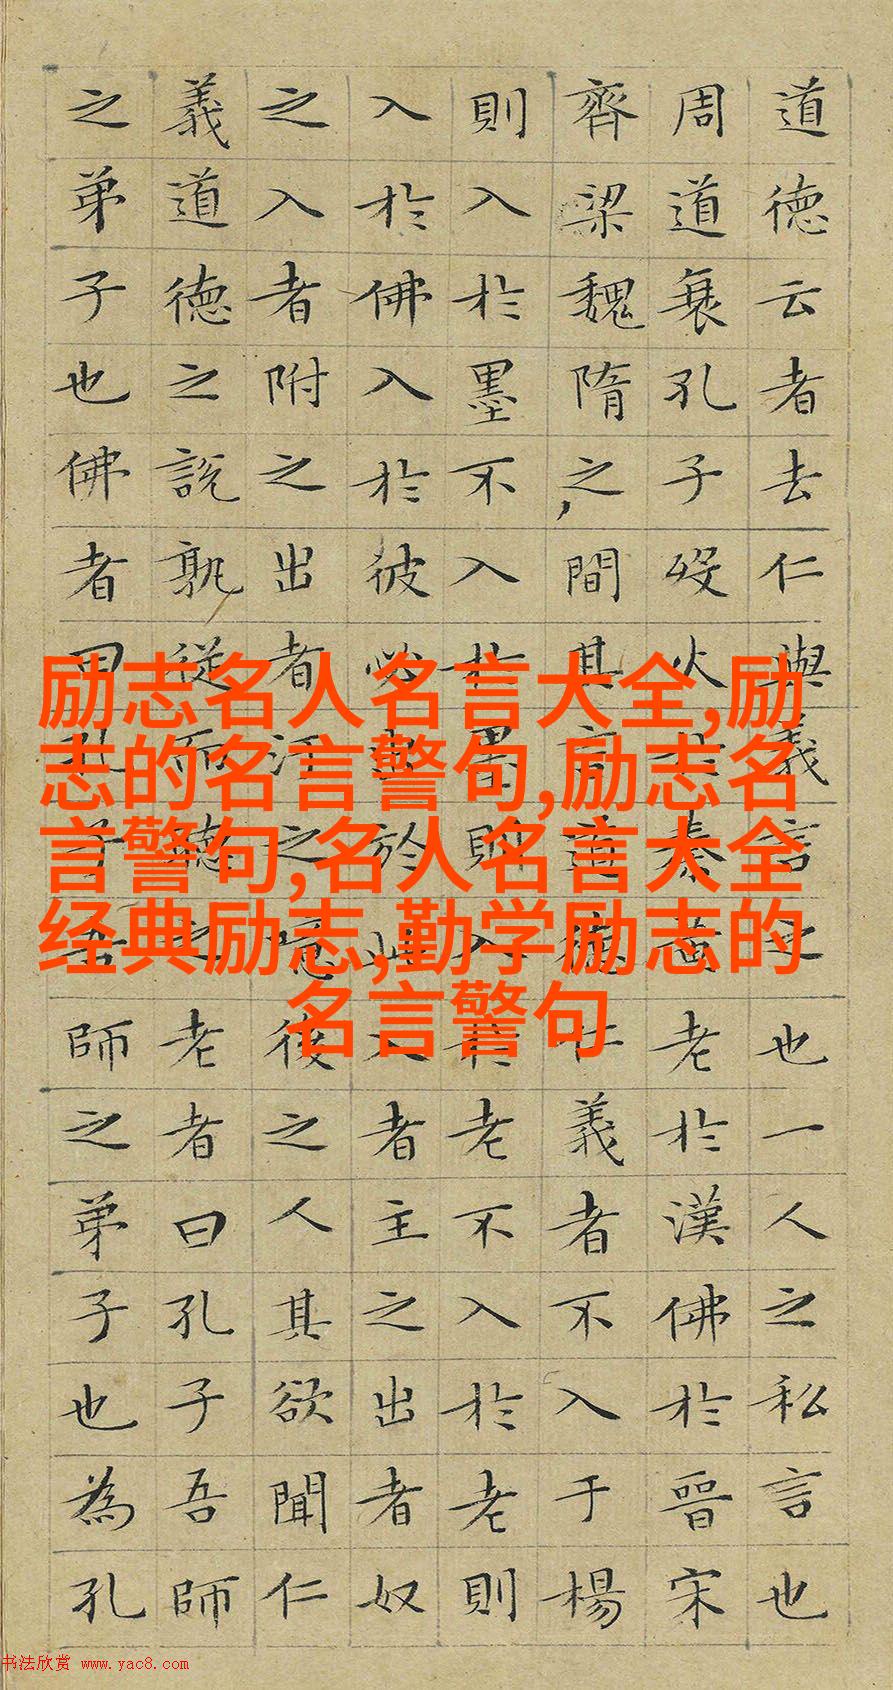 道德云者去仁與義言之也一人之私言也
周道衰孔子歿火於秦黃老於漢佛於晉宋
齊梁魏隋之間其言道德仁義者不入于楊
則入於墨不入於墨則入於老不入於老則
入於佛入於彼必出於此入者主之出者奴
之入者附之出者汙之噫後之人其欲聞仁
義道德之說孰從而聽之老者曰孔子吾師
之弟子也佛者曰孔子吾師之弟子也為孔
励志名人名言大全,励
志的名言警句,励志名
言警句,名人名言大全
经典励志,勤学励志的
名言警句
书法欣赏 www.yac8.com